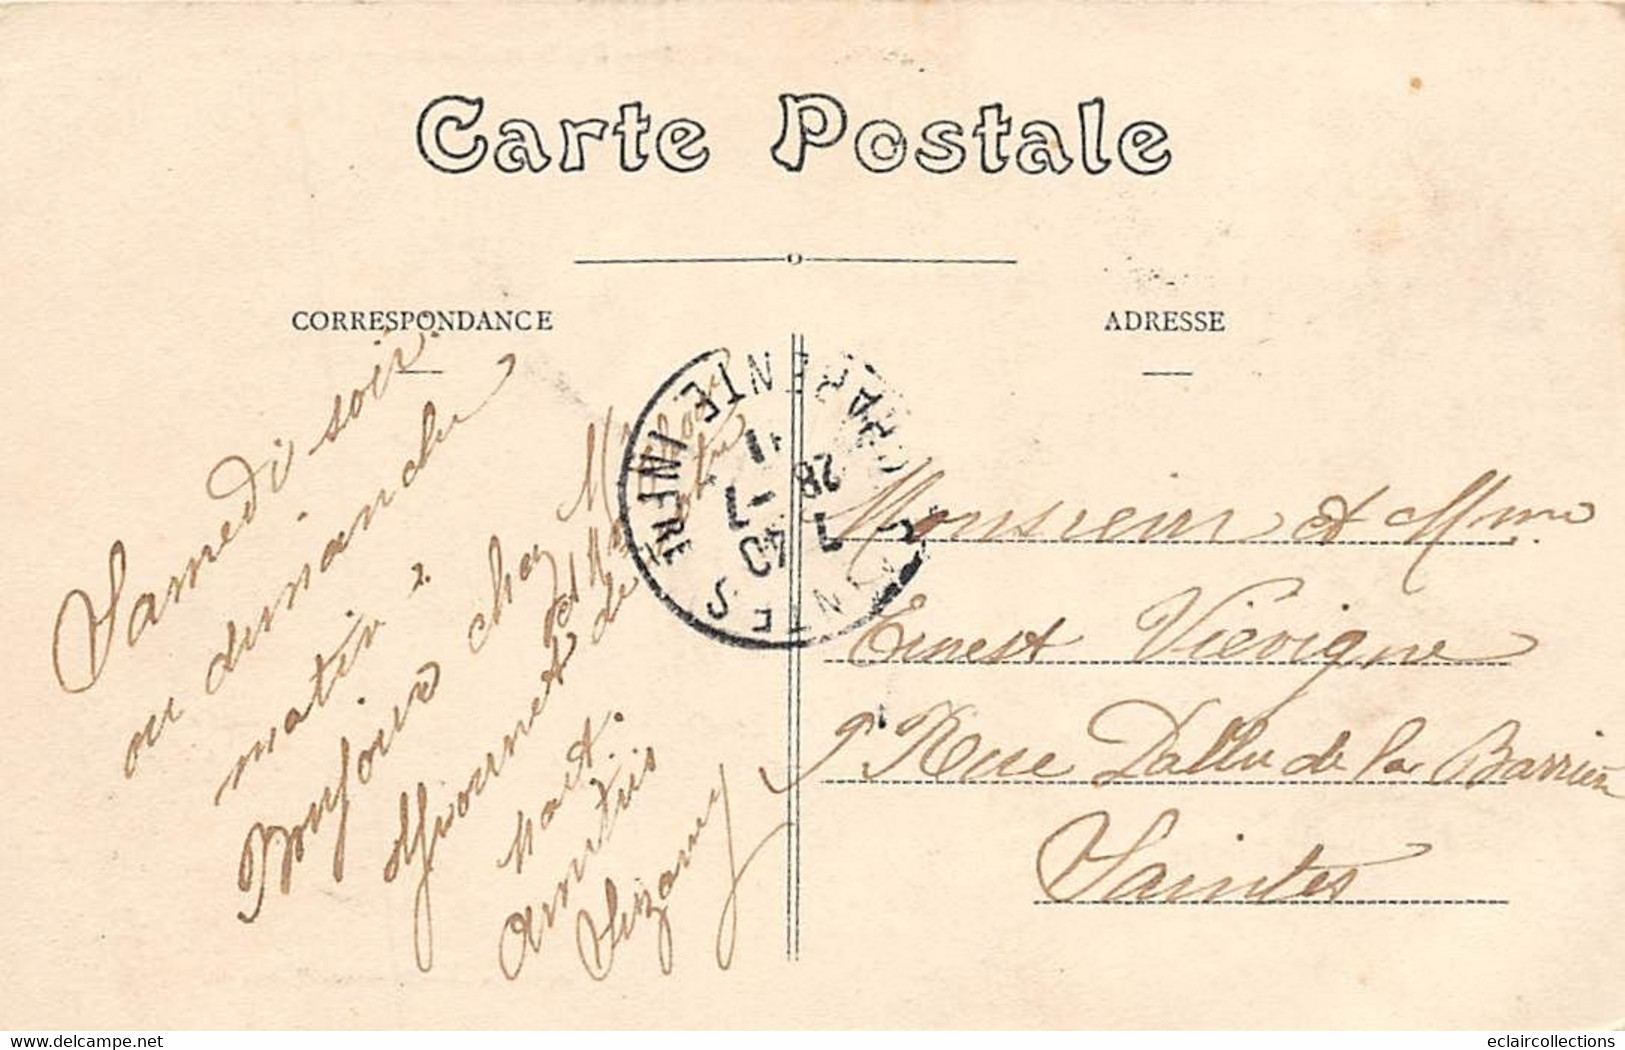 Carte Postale
CORRESPONDANCE
ADRESSE
Samedi soir
ou dimanche
matin ?
Bonjour chez M
et de
Amitiés
Monsieur et Mme
Ernest Viévigne
9 Rue Dallu de la Barrière
Saintes
SAINTES
CHARENTE INFRE
7 40
28 -7
11
www.delcampe.net
eclaircollections